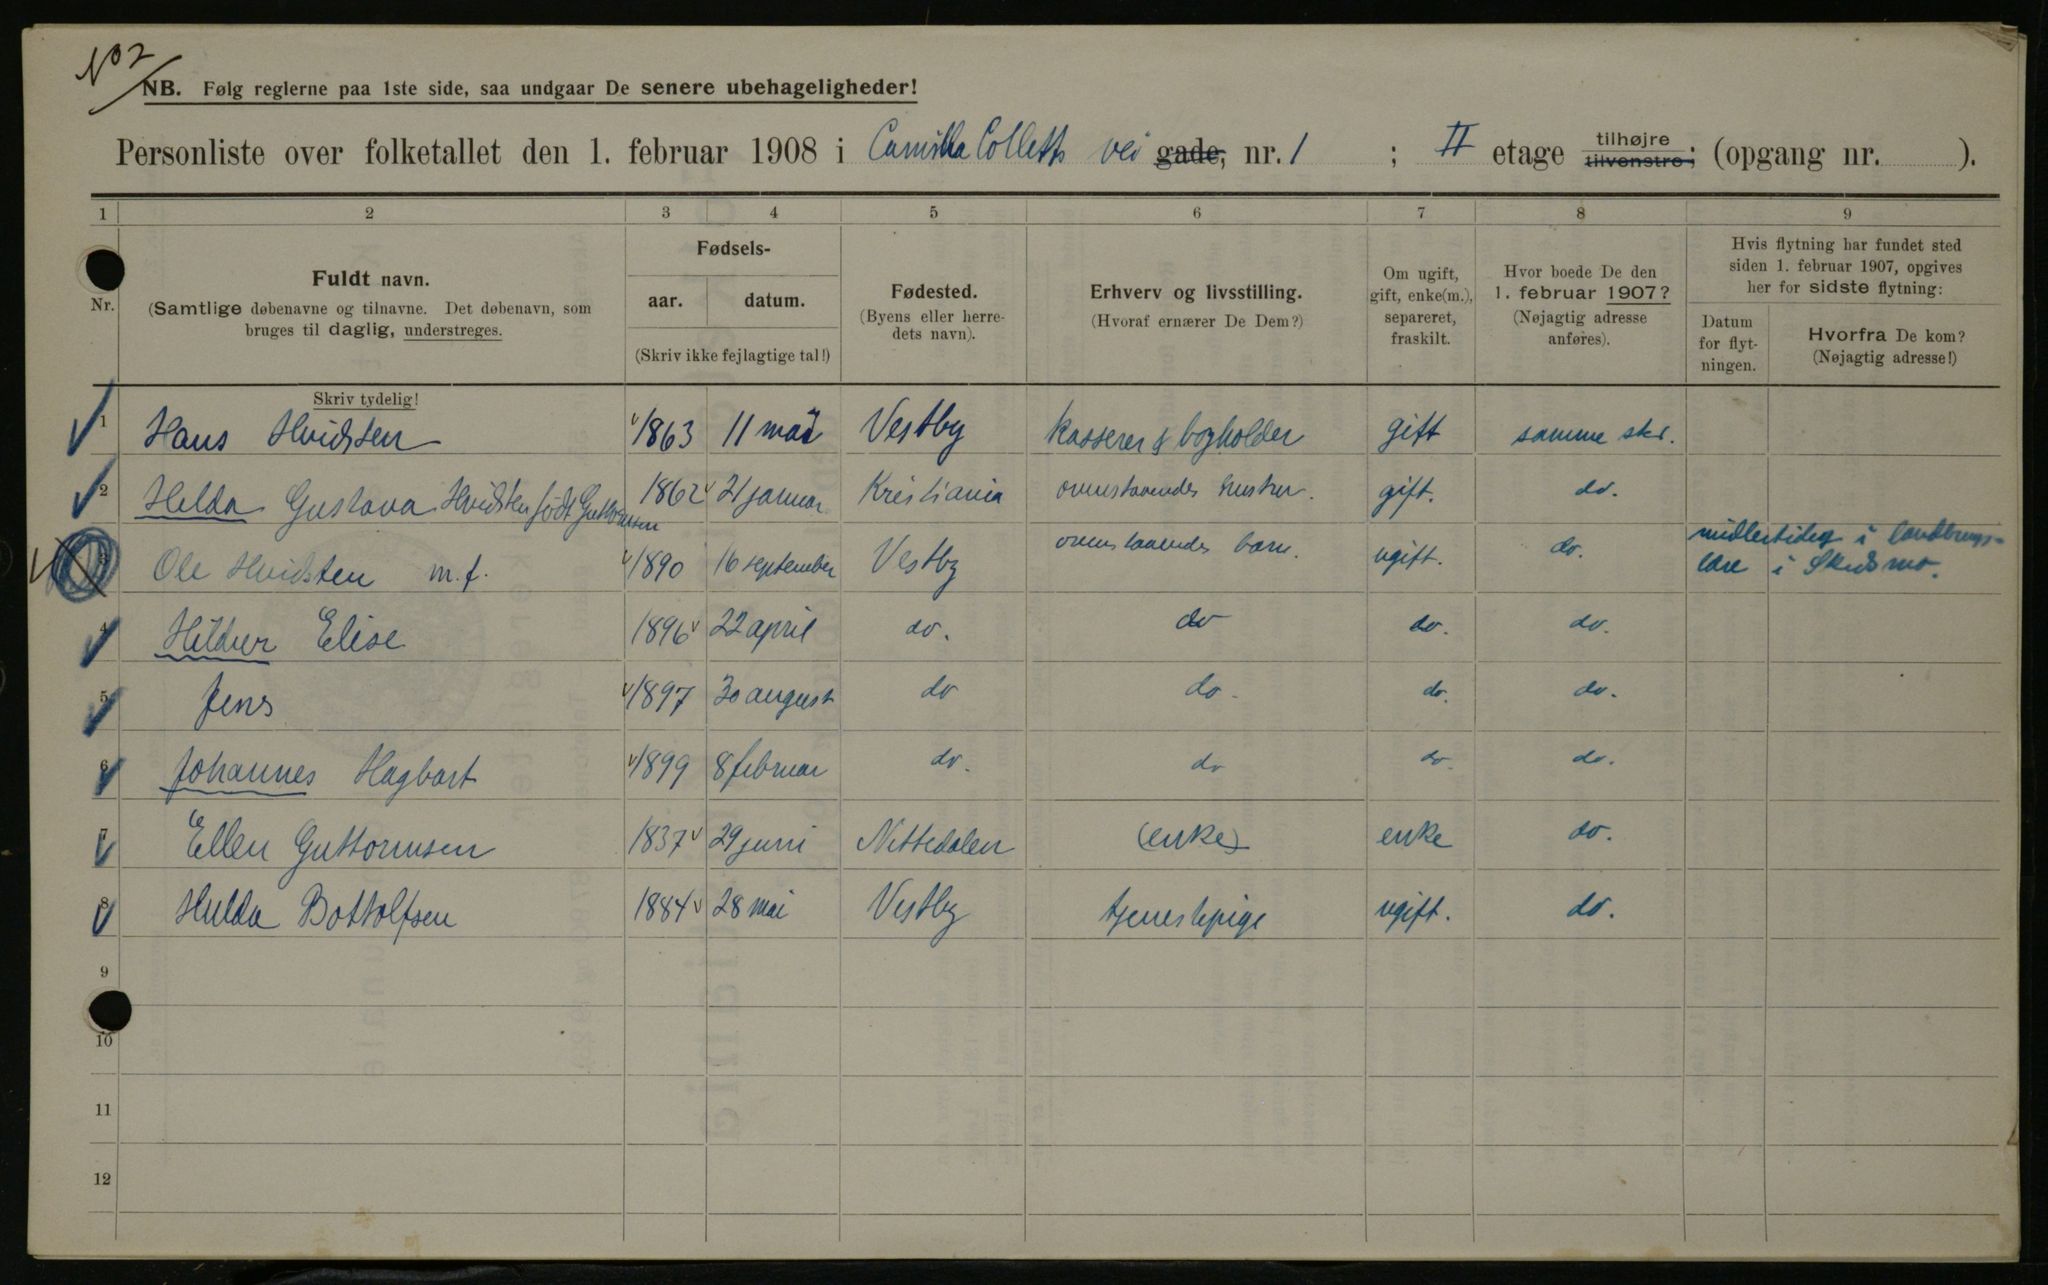 No 2
NB. Følg reglerne paa 1ste side, saa undgaar De senere ubehageligheder!
Personliste over folketallet den 1. februar 1908 i Camilla Colletts vei gade, nr. 1 ; II etage tilhøjre tilvenstre; (opgang nr. ).
1 2 3 4 5 6 7 8 9
Nr.
Fuldt navn.
(Samtlige døbenavne og tilnavne. Det døbenavn, som
bruges til daglig, understreges.
Fødsels-
aar. datum.
(Skriv ikke fejlagtige tal!)
Fødested.
(Byens eller herre-
dets navn).
Erhverv og livsstilling.
(Hvoraf ernærer De Dem?)
Om ugift,
gift, enke(m.),
separeret,
fraskilt.
Hvor boede De den
1. februar 1907?
(Nøjagtig adresse
anføres).
Hvis flytning har fundet sted
siden 1. februar 1907, opgives
her for sidste flytning:
Datum
for flyt-
ningen.
Hvorfra De kom?
(Nøjagtig adresse!)
Skriv tydelig!
1 Hans Hvidsten 1863 11 mai Vestby kasserer & bogholder gift samme sted.
2 Helda Gustava Hvidsten født Guttormsen 1862 21 januar Kristiania ovenstaaendes hustru. gift. do.
3 Ole Hvidsten m.f. 1890 16 september Vestby ovenstaaendes barn. ugift. do. midlertidig i landbrugs-
lære i Skedsmo.
4 Hildur Elise 1896 22 april do. do do. do.
5 Jens 1897 30 august do do. do. do.
6 Johannes Hagbart 1899 8 februar do. do do. do.
7 Ellen Guttormsen 1837 29 juni Nittedalen (enke) enke do.
8 Hulda Bottolfsen 1884 28 mai Vestby tjenestepige ugift. do.
9
10
11
12